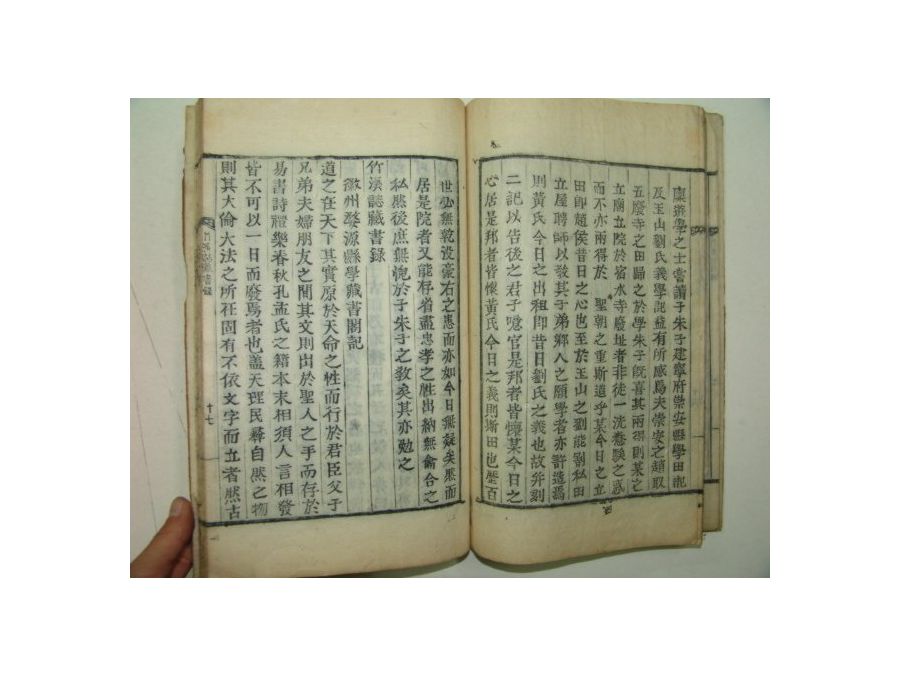 廩遊學之士嘗讀子朱子建寧府崇安縣學田記
及玉山劉氏義學記益有所感焉夫崇安之趙取
五廢寺之田歸之於學朱子旣喜其兩得則某之
立廟立院於宿水寺廢址者非徒一洗愁騃之惑
而不亦兩得於 聖朝之重斯道乎某今日之立
田卽趙侯昔日之心也至於玉山之劉能割私田
立屋聘師以敎其子弟鄕人之願學者亦許造焉
則黃氏今日之出租卽昔日劉氏之義也故幷刻
二記以告後之君子噫官是邦者皆懷某今日之
心居是邦者皆懷黃氏今日之義則斯田也歷百
世必無乾沒豪右之患而亦如今日無疑矣然而
居是院者又能存省盡忠孝之性出納無龠合之
私然後庶無愧於子朱子之敎矣其亦勉之
竹溪誌藏書錄
徽州婺源縣學藏書閣記
道之在天下其實原於天命之性而行於君臣父子
兄弟夫婦朋友之間其文則出於聖人之手而存於
易書詩禮樂春秋孔孟氏之籍本末相須人言相發
皆不可以一日而廢焉者也盖天理民彛自然之物
則其大倫大法之所在固有不依文字而立者然古
十七